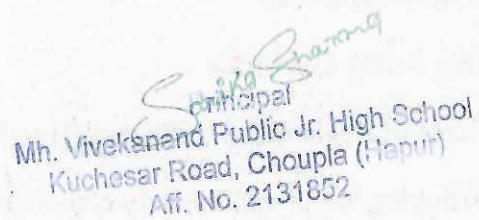 Sarika Sharma
Principal
Mh. Vivekanand Public Jr. High School
Kuchesar Road, Choupla (Hapur)
Aff. No. 2131852